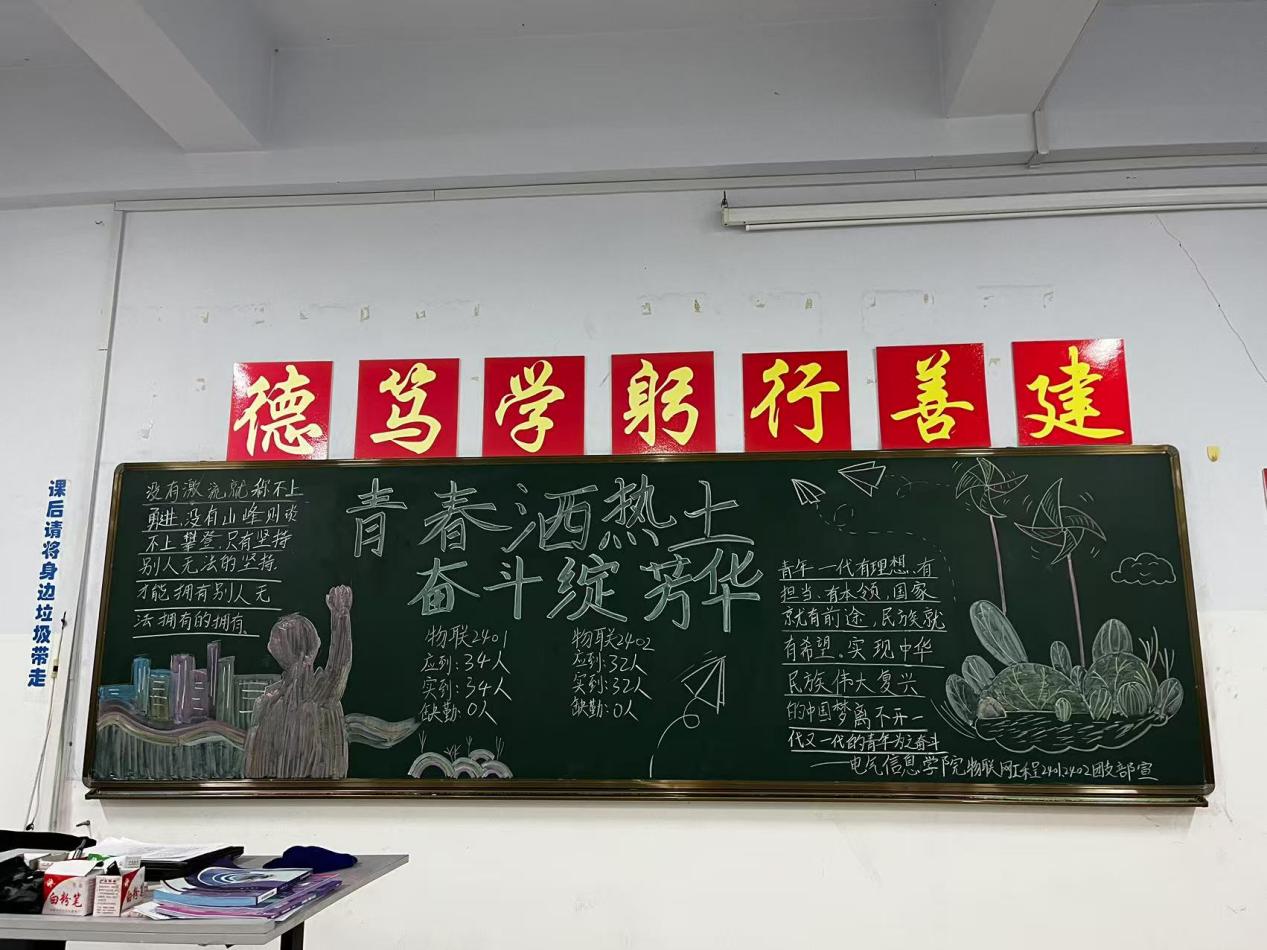 德笃学躬行善建
课后请将身边垃圾带走
没有激流就称不上
勇进,没有山峰则谈
不上攀登,只有坚持
别人无法的坚持
才能拥有别人无
法拥有的拥有。
青春洒热土
奋斗绽芳华
物联2401
应到:34人
实到:34人
缺勤:0人
物联2402
应到:32人
实到:32人
缺勤:0人
青年一代有理想、有
担当、有本领,国家
就有前途,民族就
有希望。实现中华
民族伟大复兴
的中国梦离不开一
代又一代的青年为之奋斗
——电气信息学院物联网工程2401,2402团支部宣
白粉笔